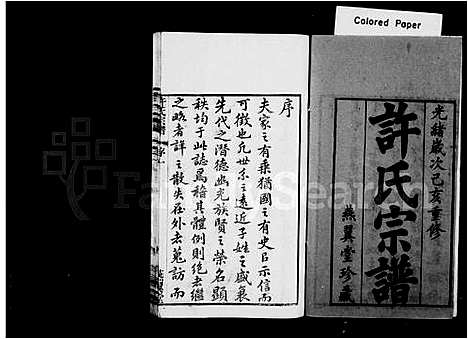 Colored Paper
光緒歲次己亥重修
許氏宗譜
燕翼堂珍藏
序
夫家之有乗猶國之有史㠯示信而
可徵也凢世系之遠近子姓之盛衰
先代之潛德幽光族賢之榮名顯
秩均于此誌焉稽其體例則絶者繼
之略者詳之散失在外者蒐訪而